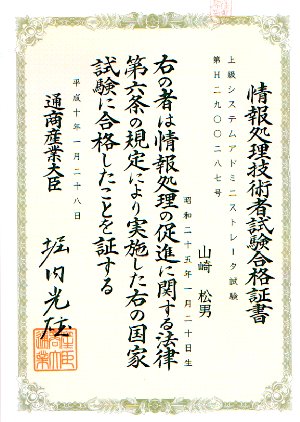 情報処理技術者試験合格証書
上級システムアドミニストレータ試験
第H二九〇〇二八七号
山崎 松男
昭和二十五年一月二十日生
右の者は情報処理の促進に関する法律
第六条の規定により実施した右の国家
試験に合格したことを証する
平成十年一月二十八日
通商産業大臣
堀内光雄